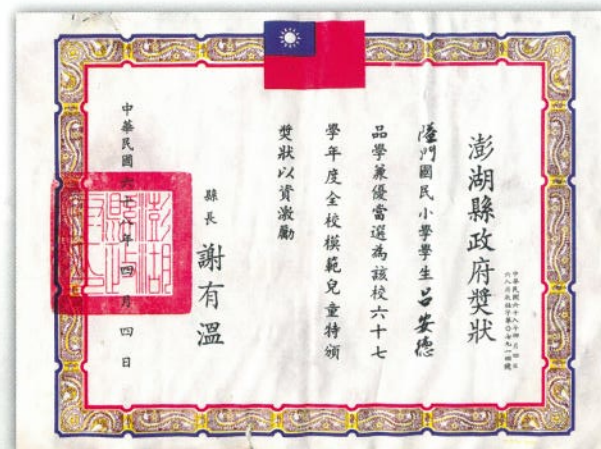 澎湖縣政府獎狀
隘門國民小學學生呂安德
品學兼優當選為該校六十七
學年度全校模範兒童特頒
獎狀以資激勵
縣長 謝有溫
中華民國六十八年四月四日